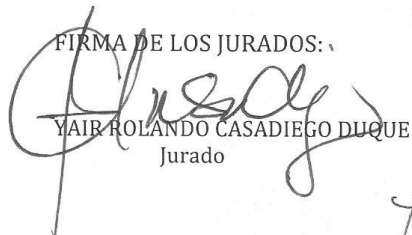 FIRMA DE LOS JURADOS:
YAIR ROLANDO CASADIEGO DUQUE
Jurado